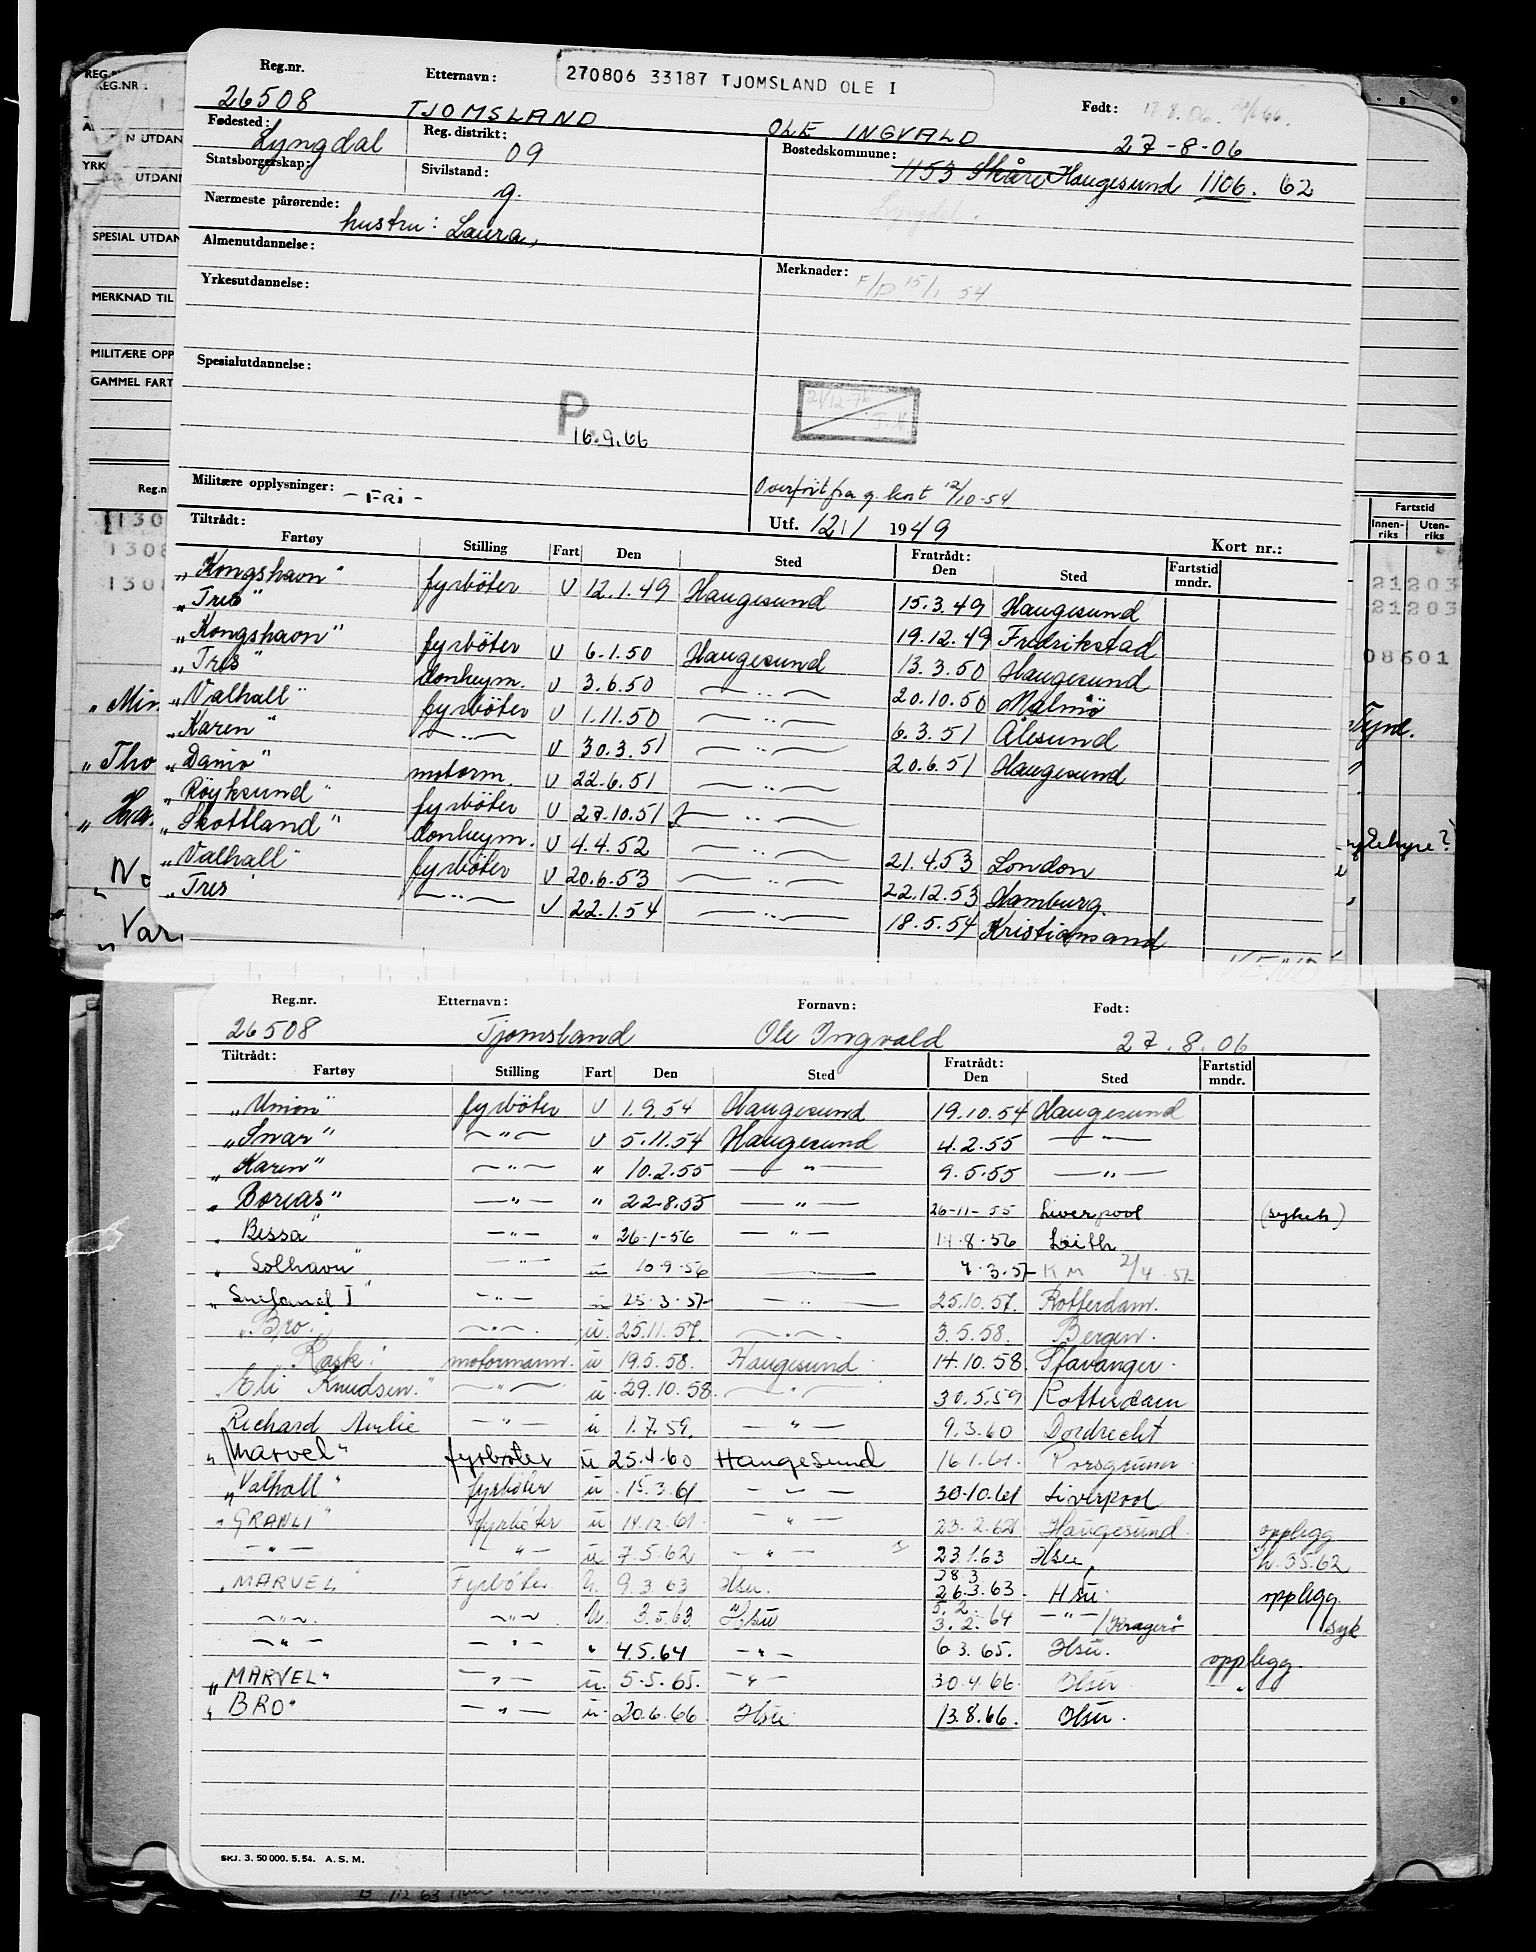 Reg.nr. Etternavn: 270806 33187 TJOMSLAND OLE I Født:
26508 TJOMSLAND OLE INGVALD 27-8-06
Fødested: Reg. distrikt: Bostedskommune:
Lyngdal 09 1153 Skåre Haugesund 1106. 62
Statsborgerskap: Sivilstand:
g.
Nærmeste pårørende:
hustru: Laura,
Almenutdannelse:
Yrkesutdannelse: Merknader: F/D 15/1 54
Spesialutdannelse:
P 16.9.66
21/12-76
Militære opplysninger: - FRI - Overført fra g. kort 12/10-54
Tiltrådt: Utf. 12/1 1949 Kort nr.:
Fartøy Stilling Fart Den Sted Fratrådt: Den Sted Fartstid mndr.
"Kongshavn" fyrbøter U 12.1.49 Haugesund 15.3.49 Haugesund
"Tres" 19.12.49 Fredrikstad
"Kongshavn" fyrbøter U 6.1.50 Haugesund 13.3.50 Haugesund
"Tres" donkeym. U 3.6.50 — " — 20.10.50 Malmö
"Valhall" fyrbøter U 1.11.50 — " — 6.3.51 Ålesund
"Karen" — " — U 30.3.51 — " — 20.6.51 Haugesund
"Damo" motorm. U 22.6.51 — " —
"Röyksund" fyrbøter U 27.10.51 — " —
"Skottland" donkeym. U 4.4.52 — " — 21.4.53 London
"Valhall" fyrbøter U 20.6.53 — " — 22.12.53 Hamburg.
"Tres" — " — U 22.1.54 — " — 18.5.54 Kristiansand
REG.NR:
N UTDAN
YRK
UTDAN
SPESIAL UTDAN
MERKNAD TIL
MILITÆRE OPP
GAMMEL FART
Reg.n
130
1308
130
"Min
"Tho
"Ha.
"No
"Var
Fartstid
Innen-riks Uten-riks
21203
21203
08601
Reg.nr. Etternavn: Fornavn: Født:
26508 Tjomsland Ole Ingvald 27.8.06
Tiltrådt: Fratrådt: Fartstid mndr.
Fartøy Stilling Fart Den Sted Den Sted
"Union" fyrbøter U 1.9.54 Haugesund 19.10.54 Haugesund
"Snar" — " — U 5.11.54 Haugesund 4.2.55 — " —
"Karen" — " — " 10.2.55 — " — 9.5.55 — " —
"Borias" — " — " 22.8.55 — " — 26-11-55 Liverpool (sykeh)
"Bessa" — " — " 26-1-56 — " — 14.8.56 Leith
"Solhavn" — " — u 10.9.56 — 7.3.57 KM 2/4.57
"Snefond I" — " — u 25.3.57 — " — 25.10.57. Rotterdam.
"Bro" — " — u. 25.11.57. — " — 3.5.58. Bergen.
"Rask" motormann. u 19.5.58. Haugesund 14.10.58 Stavanger.
"Eli Knudsen" — " — u 29.10.58. — " — 30.5.59 Rotterdam
Richard Amlie — " — u 1.7.59. — " — 9.3.60 Dordrecht
"Marvel" fyrbøter u 25.4.60 Haugesund 16.1.61. Porsgrunn
"Valhall" fyrbøter u 15.3.61 — " — 30.10.61 Liverpool
"GRANLI" fyrbøter u 14.12.61. — " — 23.2.62 Haugesund. opplegg
— " — — " — u 7.5.62 — " — 23.1.63 Hsu h. 3562
"MARVEL" Fyrbøter U. 9.3.63 Hsu. 28.3 26.3.63. Hsu. opplegg.
— " — — " — U. 3.5.63. Hsu 5.2. 3.2.64 — " — /Kragerø syk
— " — — " — " 4.5.64 — " — 6.3.65. Hsu. opplegg.
"MARVEL" — " — u. 5.5.65. — " — 30.4.66. Hsu — " —
"BRO" — " — u. 20.6.66 Hsu 13.8.66. Hsu.
SKJ. 3. 50 000. 5. 54. A. S. M.